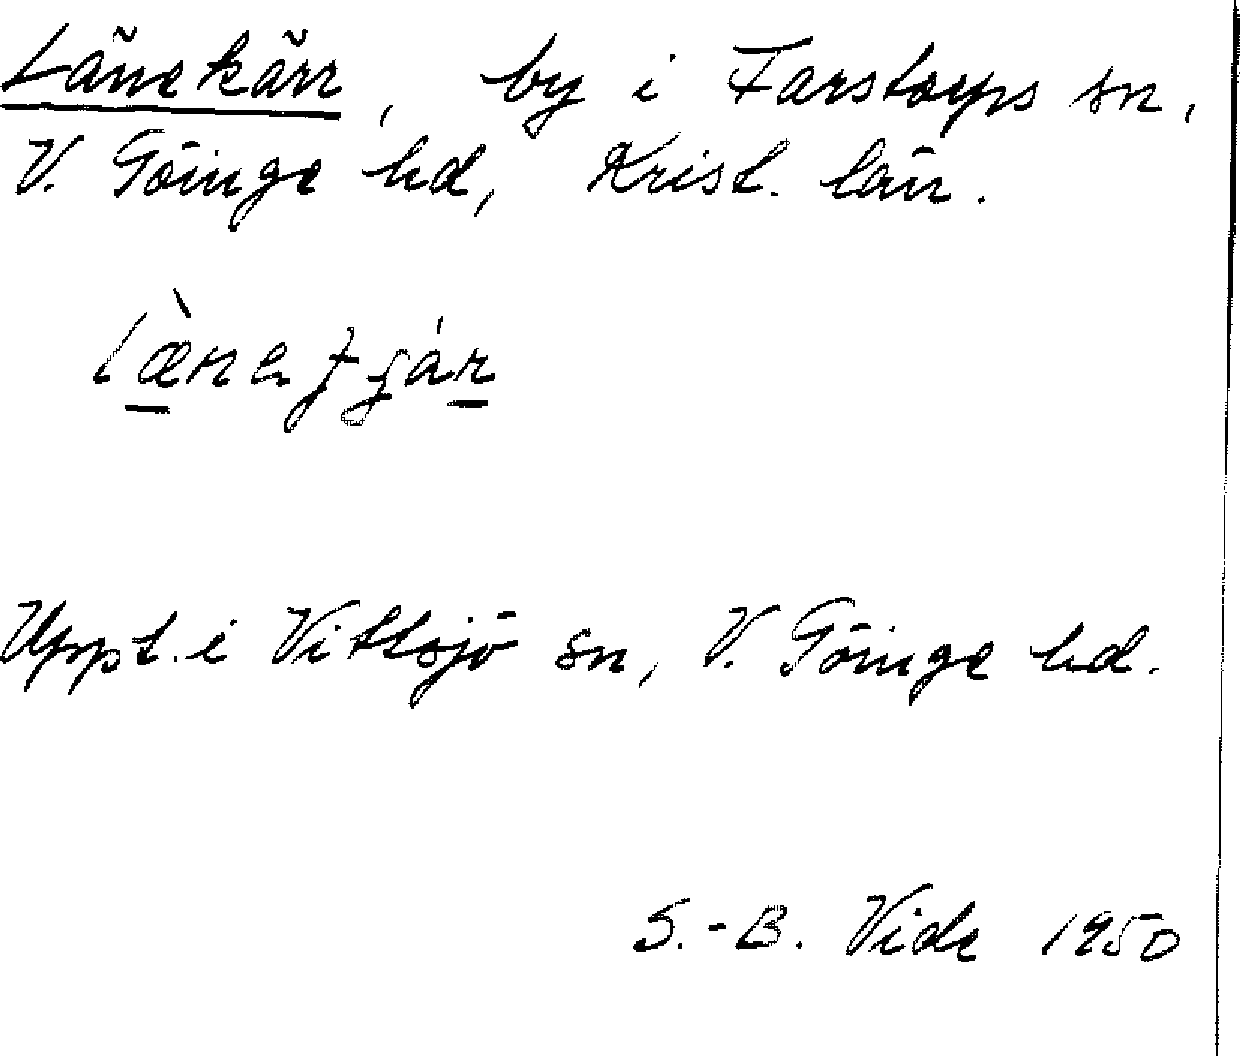 Länekärr, by i Farstorps sn,
V. Göinge hd, Krist. län.
Uppt. i Vittsjö sn, V. Göinge hd.
S.-B. Vide 1950